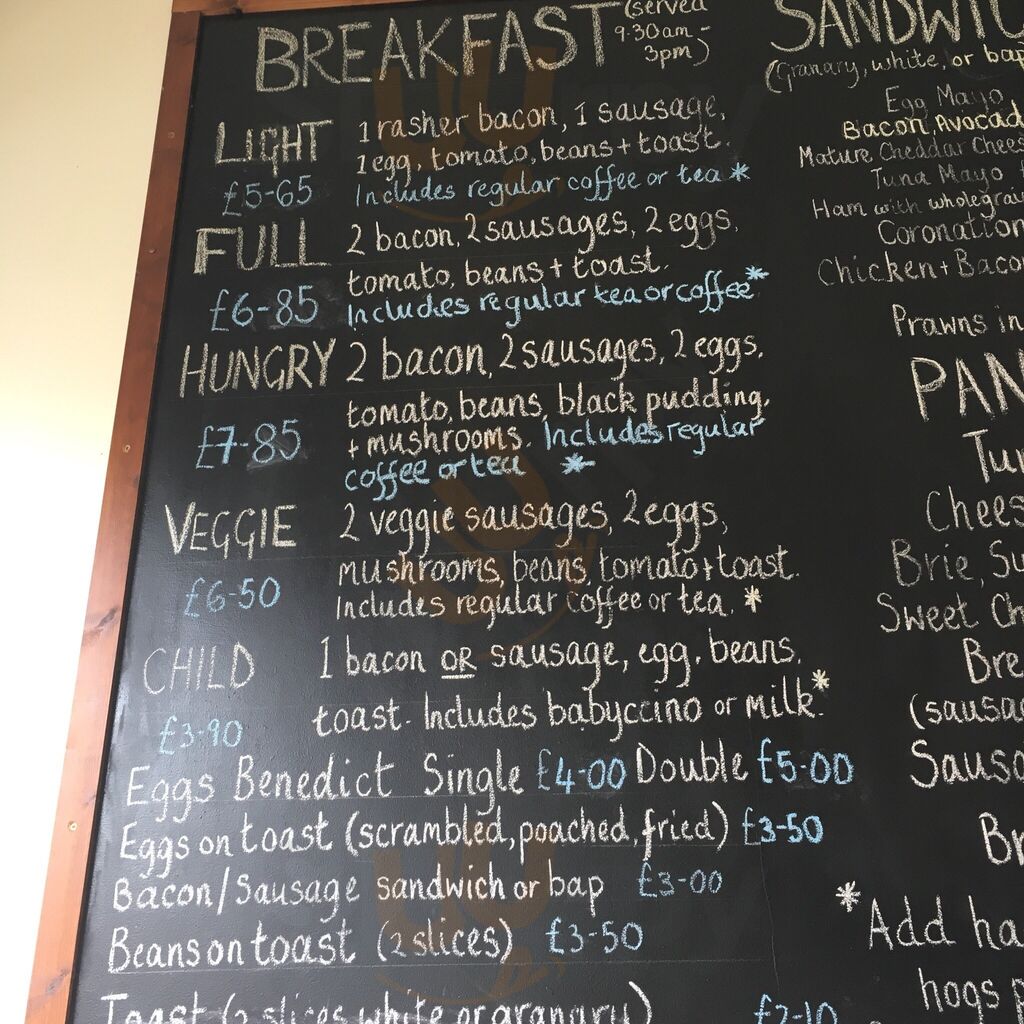 BREAKFAST (served
9·30am -
3pm)
LIGHT 1 rasher bacon, 1 sausage,
1 egg, tomato, beans + toast.
£5-65 Includes regular coffee or tea *
FULL 2 bacon, 2 sausages, 2 eggs,
tomato, beans + toast.
£6-85 Includes regular tea or coffee *
HUNGRY 2 bacon, 2 sausages, 2 eggs,
tomato, beans, black pudding,
£7-85 + mushrooms. Includes regular
coffee or tea *
VEGGIE 2 veggie sausages, 2 eggs,
mushrooms, beans, tomato + toast.
£6-50 Includes regular coffee or tea. *
CHILD 1 bacon OR sausage, egg, beans,
£3-90 toast. Includes babyccino or milk. *
Eggs Benedict Single £4-00 Double £5-00
Eggs on toast (scrambled, poached, fried) £3-50
Bacon/Sausage sandwich or bap £3-00
Beans on toast (2 slices) £3-50
Toast (2 slices white or granary) £2-10
SANDWIC
(Granary, white, or bap
Egg Mayo
Bacon, Avocad
Mature Cheddar Chees
Tuna Mayo
Ham with wholegrai
Coronation
Chicken + Bacon
Prawns in
PAN
Tu
Chees
Brie, Su
Sweet Ch
Bre
(sausag
Sausa
Br
* Add ha
hogs p